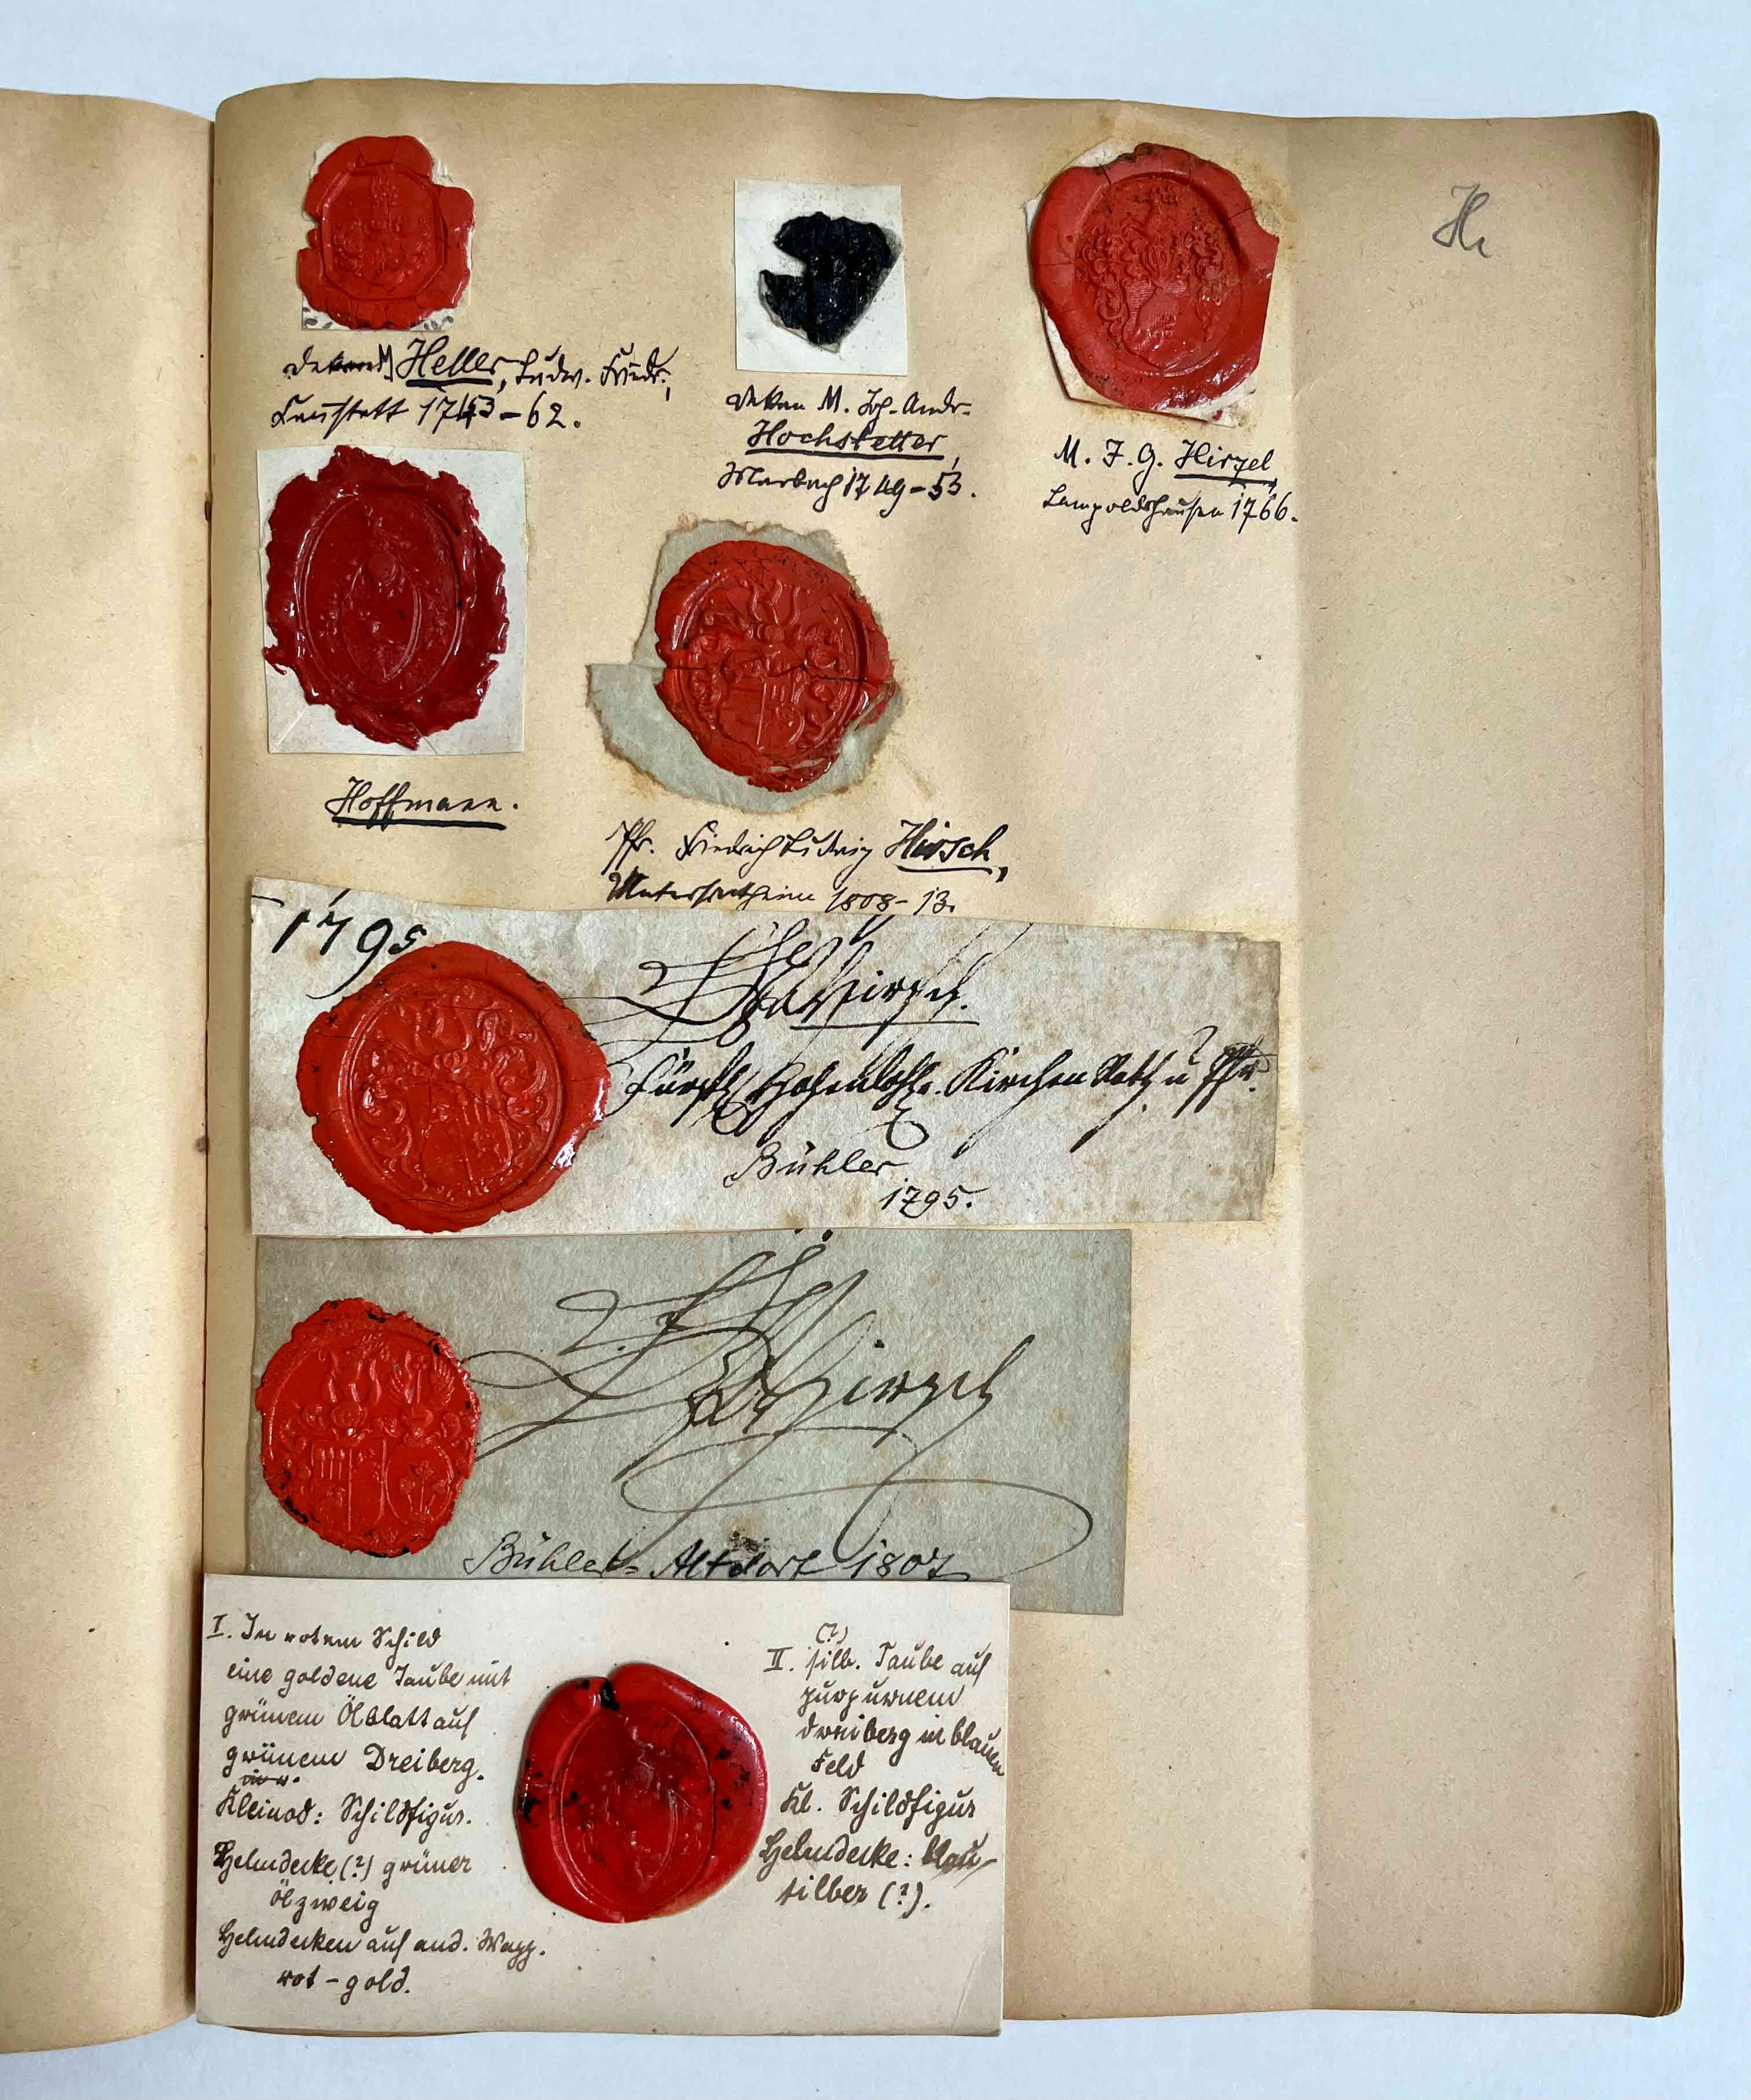 H
Dekan M. Heller, Ludw. Friedr.,
Canstatt 1743-62.
Dekan M. Joh. Andr.
Hochstetter,
Marbach 1749-53.
M. F. G. Hirzel,
Lampoldshausen 1766.
Hoffmann.
Pfr. Friedrich Ludwig Hirsch,
1808-13.
1795
Hirsch.
Fürstl. Hohenlohe. Kirchen Rath u Pfr.
Bühler
1795.
Hirsch
Bühler-Altdorf 1807
I. In rotem Schild
eine goldene Taube mit
grünem Ölblatt auf
grünem Dreiberg.
Kleinod: Schildfigur.
Helmdecke (?) grüner
Ölzweig
Helmdecken auf and. Wapp.
rot-gold.
(?)
II. silb. Taube auf
purpurnem
Dreiberg in blauem
Feld
Kl. Schildfigur
Helmdecke: blau-
silber (?).